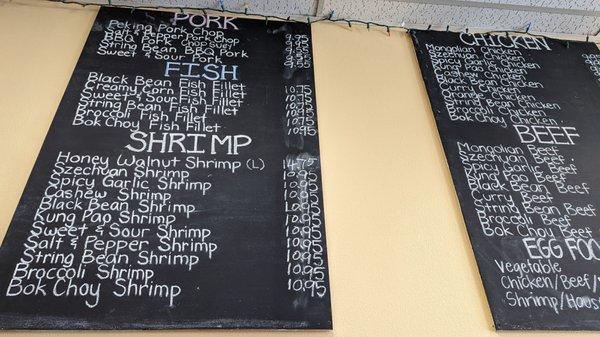 PORK
Peking Pork Chop 9.95
Salt & Pepper Pork Chop 9.95
BBQ Pork Chop Suey 9.95
String Bean BBQ Pork 9.95
Sweet & Sour Pork 9.95
FISH
Black Bean Fish Fillet 10.75
Creamy Corn Fish Fillet 10.95
Sweet & Sour Fish Fillet 10.95
String Bean Fish Fillet 10.95
Broccoli Fish Fillet 10.75
Bok Choy Fish Fillet 10.95
SHRIMP
Honey Walnut Shrimp (L) 14.75
Szechuan Shrimp 10.95
Spicy Garlic Shrimp 10.95
Cashew Shrimp 10.95
Black Bean Shrimp 10.95
Kung Pao Shrimp 10.95
Sweet & Sour Shrimp 10.95
Salt & Pepper Shrimp 10.95
String Bean Shrimp 10.95
Broccoli Shrimp 10.95
Bok Choy Shrimp 10.95
CHICKEN
Mongolian Chicken
Szechuan Chicken
Spicy Chicken
Kung Pao Chicken
Cashew Chicken
Black Chicken
Curry Chicken
Orange Chicken
String Bean Chicken
Broccoli Chicken
BEEF
Mongolian Beef
Szechuan Beef
Spicy Garlic Beef
Kung Pao Beef
Black Bean Beef
Curry Beef
String Bean Beef
Broccoli Beef
Bok Choy Beef
EGG FOO
Vegetable
Chicken/Beef/
Shrimp/House